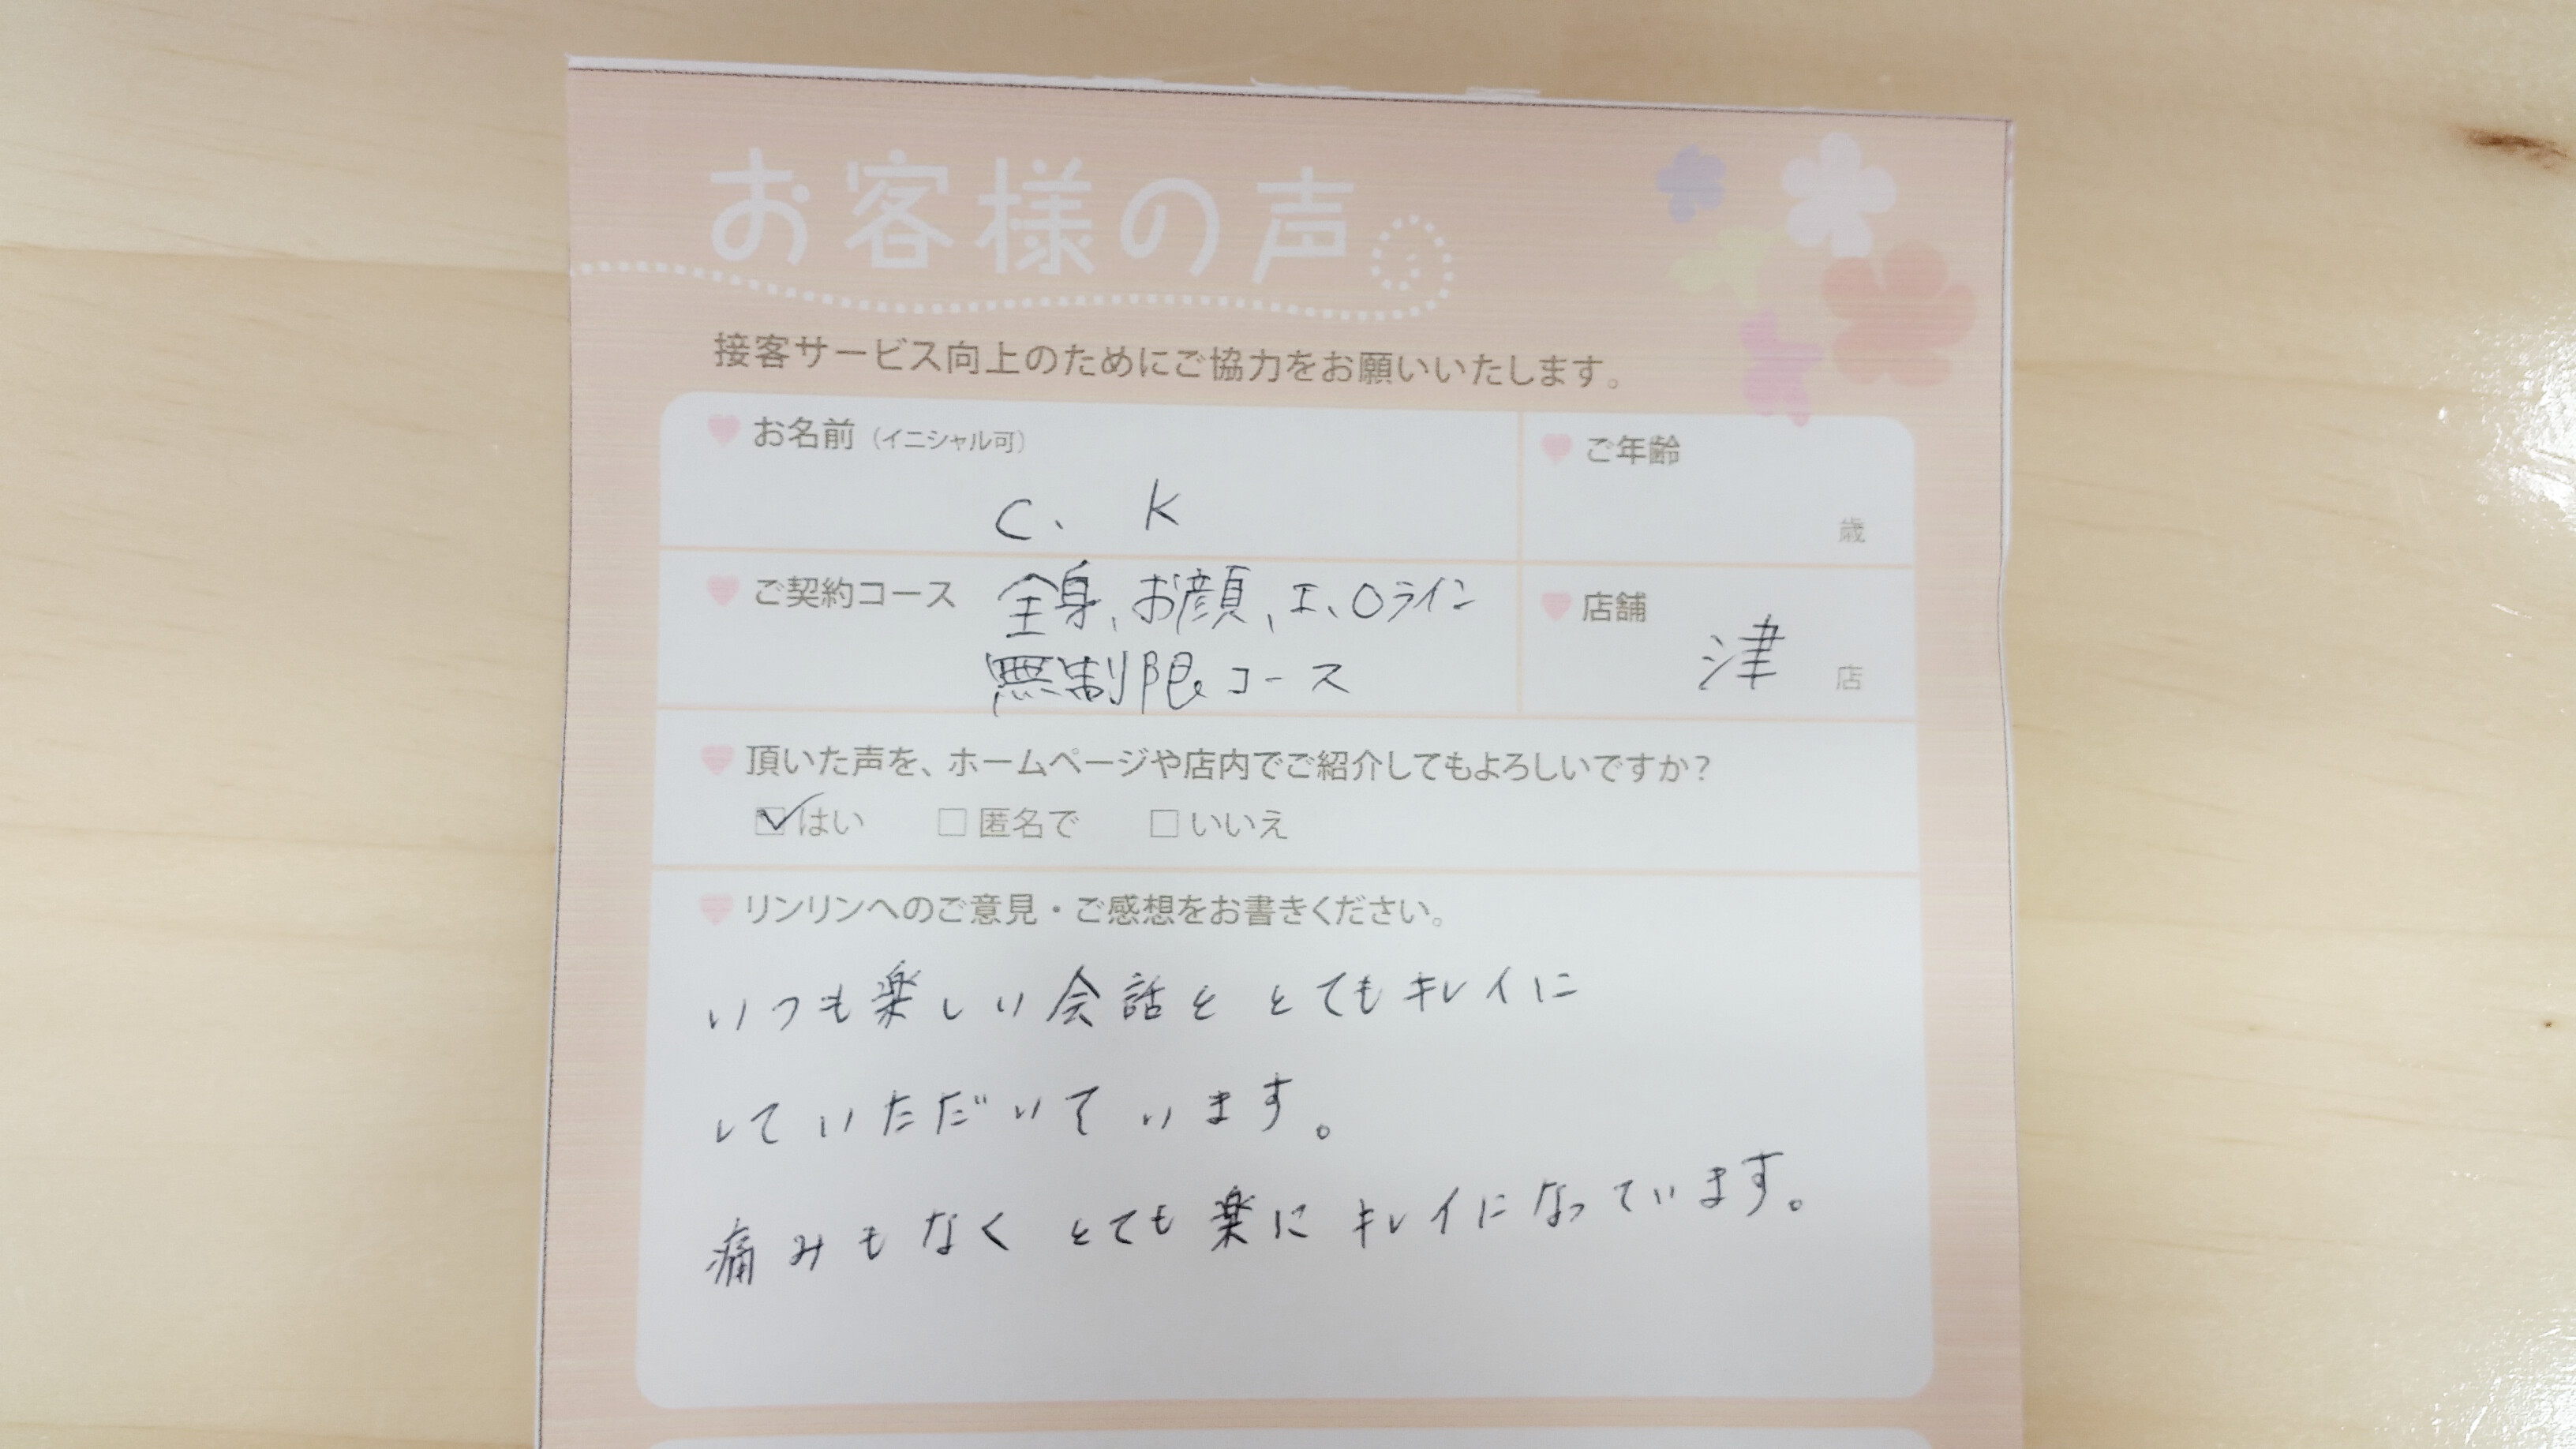 お客様の声
接客サービス向上のためにご協力をお願いいたします。
お名前（イニシャル可）
C、 K
ご年齢
歳
ご契約コース 全身、お顔、I、Oライン
無制限コース
店舗
津 店
頂いた声を、ホームページや店内でご紹介してもよろしいですか？
はい 匿名で いいえ
リンリンへのご意見・ご感想をお書きください。
いつも楽しい会話と とてもキレイに
していただいています。
痛みもなく とても楽に キレイになっています。